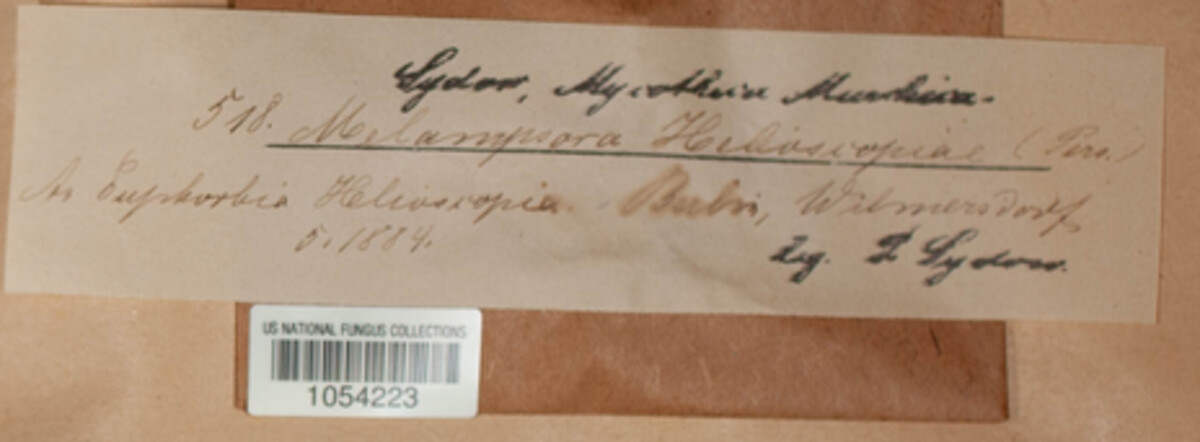 Sydow, Mycotheca Marchica.
518. Melampsora Helioscopiae (Pers.)
An Euphorbia Helioscopia. Berlin, Wilmersdorf
5.1884.
Leg. P Sydow.
US NATIONAL FUNGUS COLLECTIONS
1054223